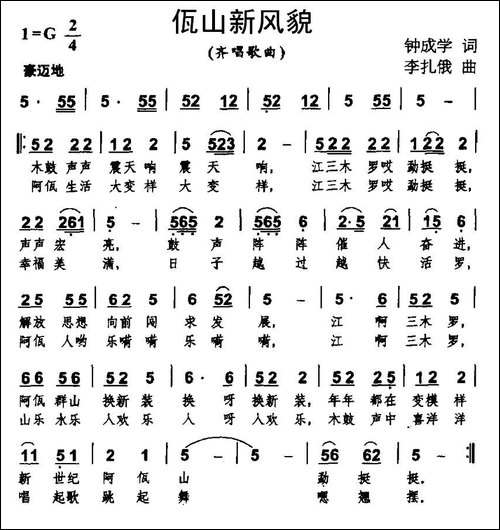 佤山新风貌
1=G 2/4
(齐唱歌曲)
钟成学 词
豪迈地
李扎俄 曲
5· 55 | 55 55 | 5· 55 | 55 55 | 52 5 | 5 - |
‖: 52 22 | 12 2 | 5 523 | 2 - | 522 22 | 122 2 |
木鼓 声声 震天 响 震 天 响, 江三木 罗哎 勐挺 挺,
阿佤 生活 大变 样 大 变 样, 江三木 罗哎 勐挺 挺,
22 261 | 5 - | 565 2 | 565 6 | 2·5 21 | 15 6 |
声声 宏 亮, 鼓 声 阵 阵 催 人 奋 进,
幸福 美 满, 日 子 越 过 越 快 活 罗,
25 55 | 62 2 | 6 52 | 5 - | 5· 6 | 52 2 |
解放 思想 向前 闯 求 发 展, 江 啊 三木 罗,
阿佤 人哟 乐嗬 嗬 乐 嗬 嗬, 江 啊 三木 罗,
66 56 | 52 5 | 6· 6 | 52 2 | 52 25 | 12 2 |
阿佤 群山 换新 装 换 呀 换新 装, 年年 都在 变模 样
山乐 水乐 人欢 乐 人 呀 人欢 乐, 木鼓 声中 喜洋 洋
11 51 | 12 2 | 5 - | 5 - | 56 62 | 5 - :‖
新 世纪 阿佤 山 勐 挺 挺.
唱 起歌 跳起 舞 嗯 翘 摆.